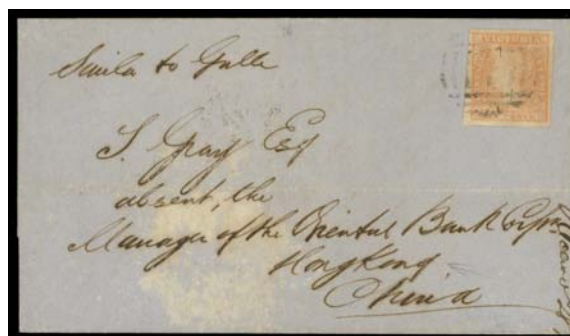 VICTORIA
Simla to Galle
S. Gray Esq
absent, the
Manager of the Oriental Bank Corpn
HongKong
China